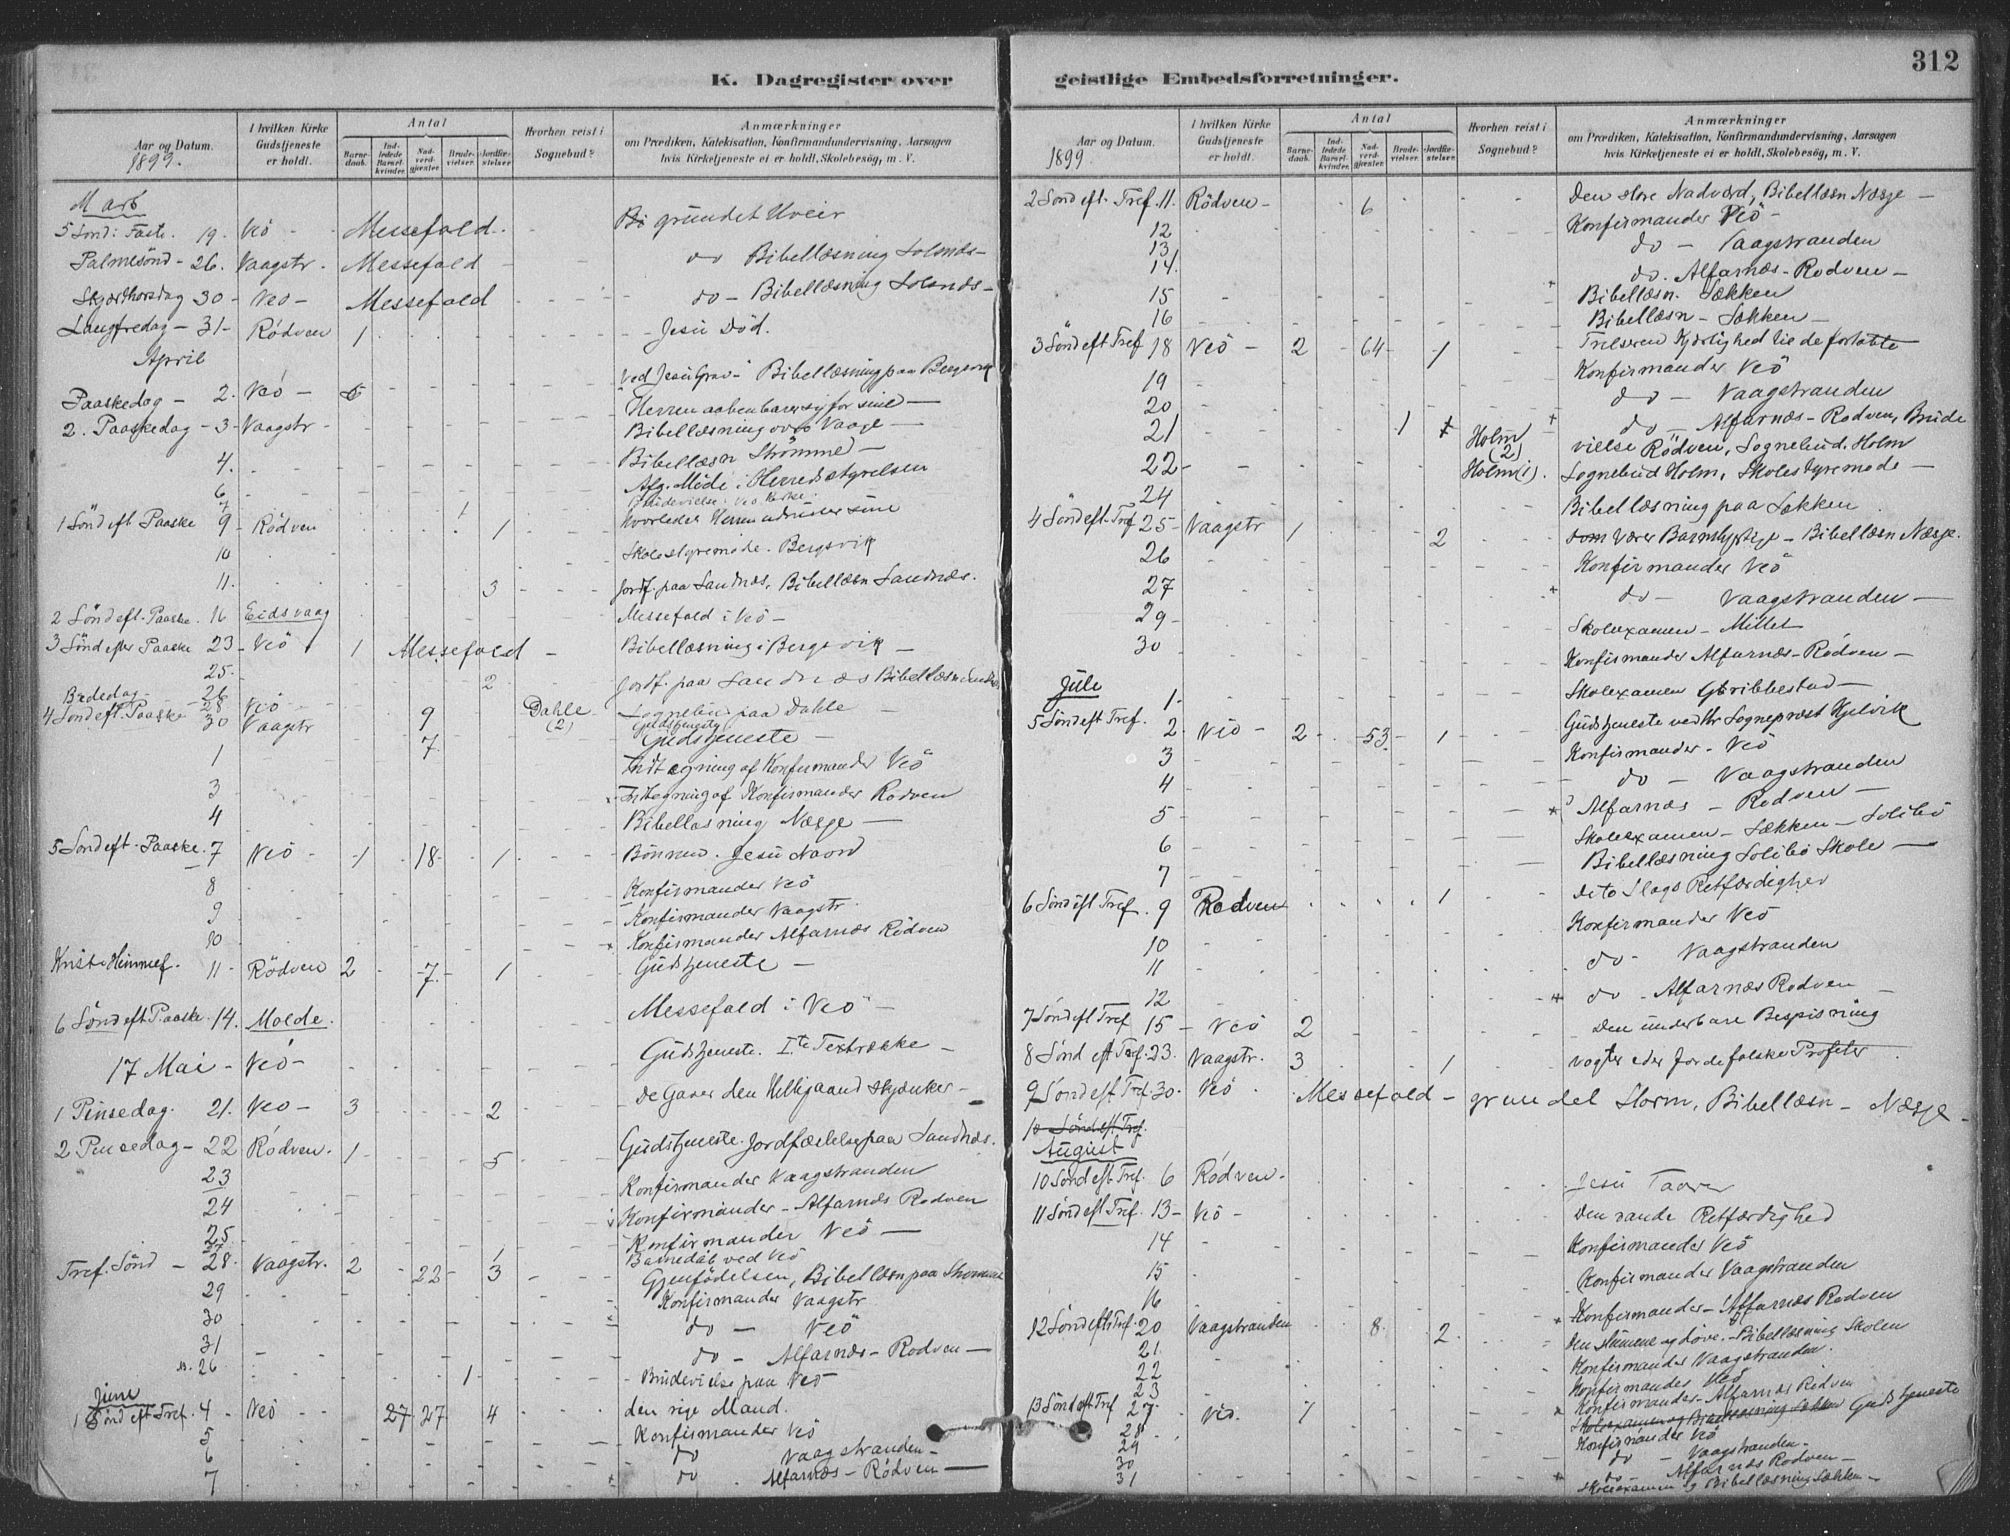 K. Dagregister over
Aar og Datum.
1899.
I hvilken Kirke Gudstjeneste er holdt.
Antal
Barnedaab.
Indledede Barselkvinder.
Nadverdgjester.
Brudevielser.
Jordfæstelser.
Hvorhen reist i Sognebud?
Anmærkninger
om Prædiken, Katekisation, Konfirmandundervisning, Aarsagen
hvis Kirketjeneste ei er holdt, Skolebesøg, m. V.
Marts
5 Sønd: Faste. 19. Veö Messefald. grundet Uveir
Palmesønd - 26. Vaagstr. Messefald do Bibellæsning Solsnæs -
Skjærthorsdag 30 - Veö - Messefald do - Bibellæsning Solsnæs -
Langfredag - 31 - Rødven 1 Jesu Død.
April
Paaskedag - 2. Veö - 5 Ved Jesu Grav - Bibellæsning paa Bergsvik
2. Paaskedag - 3 - Vaagstr - Herren aabenbarer sig for sine -
Bibellæsning ovre Vaage -
4. Bibellæsn Strömme -
6 Afg. Møde i Herredsstyrelsen
7 1 Brudevielse i Veö Kirke.
1 Sönd eft Paaske 9 - Rødven 1 Hvorledes Herren udruster sine
10 Skolestyremøde. Bergsvik
11. 3 Jordf. paa Sandnæs, Bibellæsn Sandnæs.
2 Sönd eft. Paaske. 16 Eidsvaag Messefald i Veö -
3 Sönd efter Paaske 23 - Veö 1 Messefald - Bibellæsning i Bergsvik -
25. 2 Jordf. paa Sandnæs Bibellæsn
26 Dahle (2) Sognebud paa Dahle -
Bededag - 28 Veö 9 Gudstjeneste
4 Sönd eft. Paaske 30 Vaagstr 7 Gudstjeneste -
1 Indtegning af Konfirmander Veö
3 Indtegning af Konfirmander Rødven
4 Bibellæsning Næsje -
5 Sönd eft. Paaske. 7 Veö - 1 18 - 1 Bönnen. Jesu Navn
8 Konfirmander Veö
9 Konfirmander Vaagstr.
10 Konfirmander Alfarnæs Rødven
Kristi Himmelf. 11 - Rødven 2 - 7 - 1 Gudstjeneste -
6 Sönd eft Paaske 14. Molde. Messefald i Veö -
17 Mai - Veö - Gudstjeneste. Ite Textrække -
1 Pinsedag. 21. Veö - 3 2 De Gaver den Helligaand skjænker -
2 Pinsedag - 22 Rødven. 1 5 Gudstjeneste. Jordfæstelse paa Sandnæs.
23 Konfirmander Vaagstranden
24 Konfirmander - Alfarnæs Rødven
25 Konfirmander Veö -
27 Barnedaab ved Veö
Tref. Sönd - 28. Vaagstr. 2 22 - 3 Gjenfödelsen, Bibellæsn paa
29 Konfirmander Vaagstr
30 do - Veö
31 do - Alfarnæs - Rødven -
26 1 Brudevielse paa Veö
Juni
1 Sönd eft Tref. 4 - Veö 27 27 - 4 den rige Mand.
5 Konfirmander Veö
6 do Vaagstranden -
7 do Alfarnæs - Rødven -
geistlige Embedsforretninger.
312
Aar og Datum.
1899.
I hvilken Kirke Gudstjeneste er holdt.
Antal
Barnedaab.
Indledede Barselkvinder.
Nadverdgjester.
Brudevielser.
Jordfæstelser.
Hvorhen reist i Sognebud?
Anmærkninger
om Prædiken, Katekisation, Konfirmandundervisning, Aarsagen
hvis Kirketjeneste ei er holdt, Skolebesøg, m. V.
2 Sönd eft. Tref. 11. Rödven - 6 Den store Nadverd, Bibellæsn Næsje -
12 Konfirmander Veö -
13 do - Vaagstranden
14. do. Alfarnæs - Rødven -
15 Bibellæsn. Sækken
16 Bibellæsn - Sækken -
3 Sönd eft Tref 18 Veö - 2 64 - 1 Frelserens Kjærlighed til de fortabte
19 Konfirmander Veö
20 do - Vaagstranden
21 1 Holm (2) do - Alfarnæs - Rødven, Brude
vielse Rödven, Sognebud. Holm
22 - Holm (1). Sognebud Holm, Skolestyremøde -
24 Bibellæsning paa Sækken
4 Sönd eft. Tref 25 - Vaagstr 1 2 Værer Barmhjertige - Bibellæsn Næsje.
26 Konfirmander Veö
27 do - Vaagstranden -
29 - Skolexamen - Mittet
30 Konfirmander Alfarnæs - Rødven -
Juli
1. Skolexamen Gribbestad -
5 Sönd eft Tref. 2. Veö - 2 - 53 - 1 Gudstjeneste ved Hr Sogneprest Hjelvik
3 Konfirmander - Veö
4 do - Vaagstranden
5 Alfarnæs - Rødven -
6 Skolexamen - Sækken - Solibö
7 Bibellæsning Solibö Skole -
6 Sönd eft Tref. 9 Rødven 1 De to Slags Retfærdighed
10 Konfirmander Veö
11 do - Vaagstranden
12 do - Alfarnæs Rødven -
7 Sönd eft Tref 15 - Veö 2 Den underbare Bespisning
8 Sönd eft Tref. 23. Vaagstr. 3 1 Vogter eder for de falske Profeter.
9 Sönd eft Tref. 30. Veö Messefald - grundet Storm, Bibellæsn - Næsje -
10 Sönd eft Tref.
August
10 Sönd eft Tref. 6 Rödven. Jesu Taarer
11 Sönd eft Tref. 13 - Veö - Den sande Retfærdighed
14 Konfirmander Veö
15 Konfirmander Vaagstranden
16 Konfirmander - Alfarnæs Rødven
12 Sönd eft Tref. 20 Vaagstranden 8 2. Den stumme og döve. - Bibellæsning Skolen
21. Konfirmander Vaagstranden.
22 Konfirmander Veö
23 Konfirmander - Alfarnæs Rødven
13 Sönd eft Tref 27. Veö. 1 Skolexamen og Bibellæsning Sækken Gudstjeneste
28 Konfirmander Veö
29 do - Vaagstranden -
30 do - Alfarnæs Rødven -
31 Skolexamen og Bibellæsning Sækken -